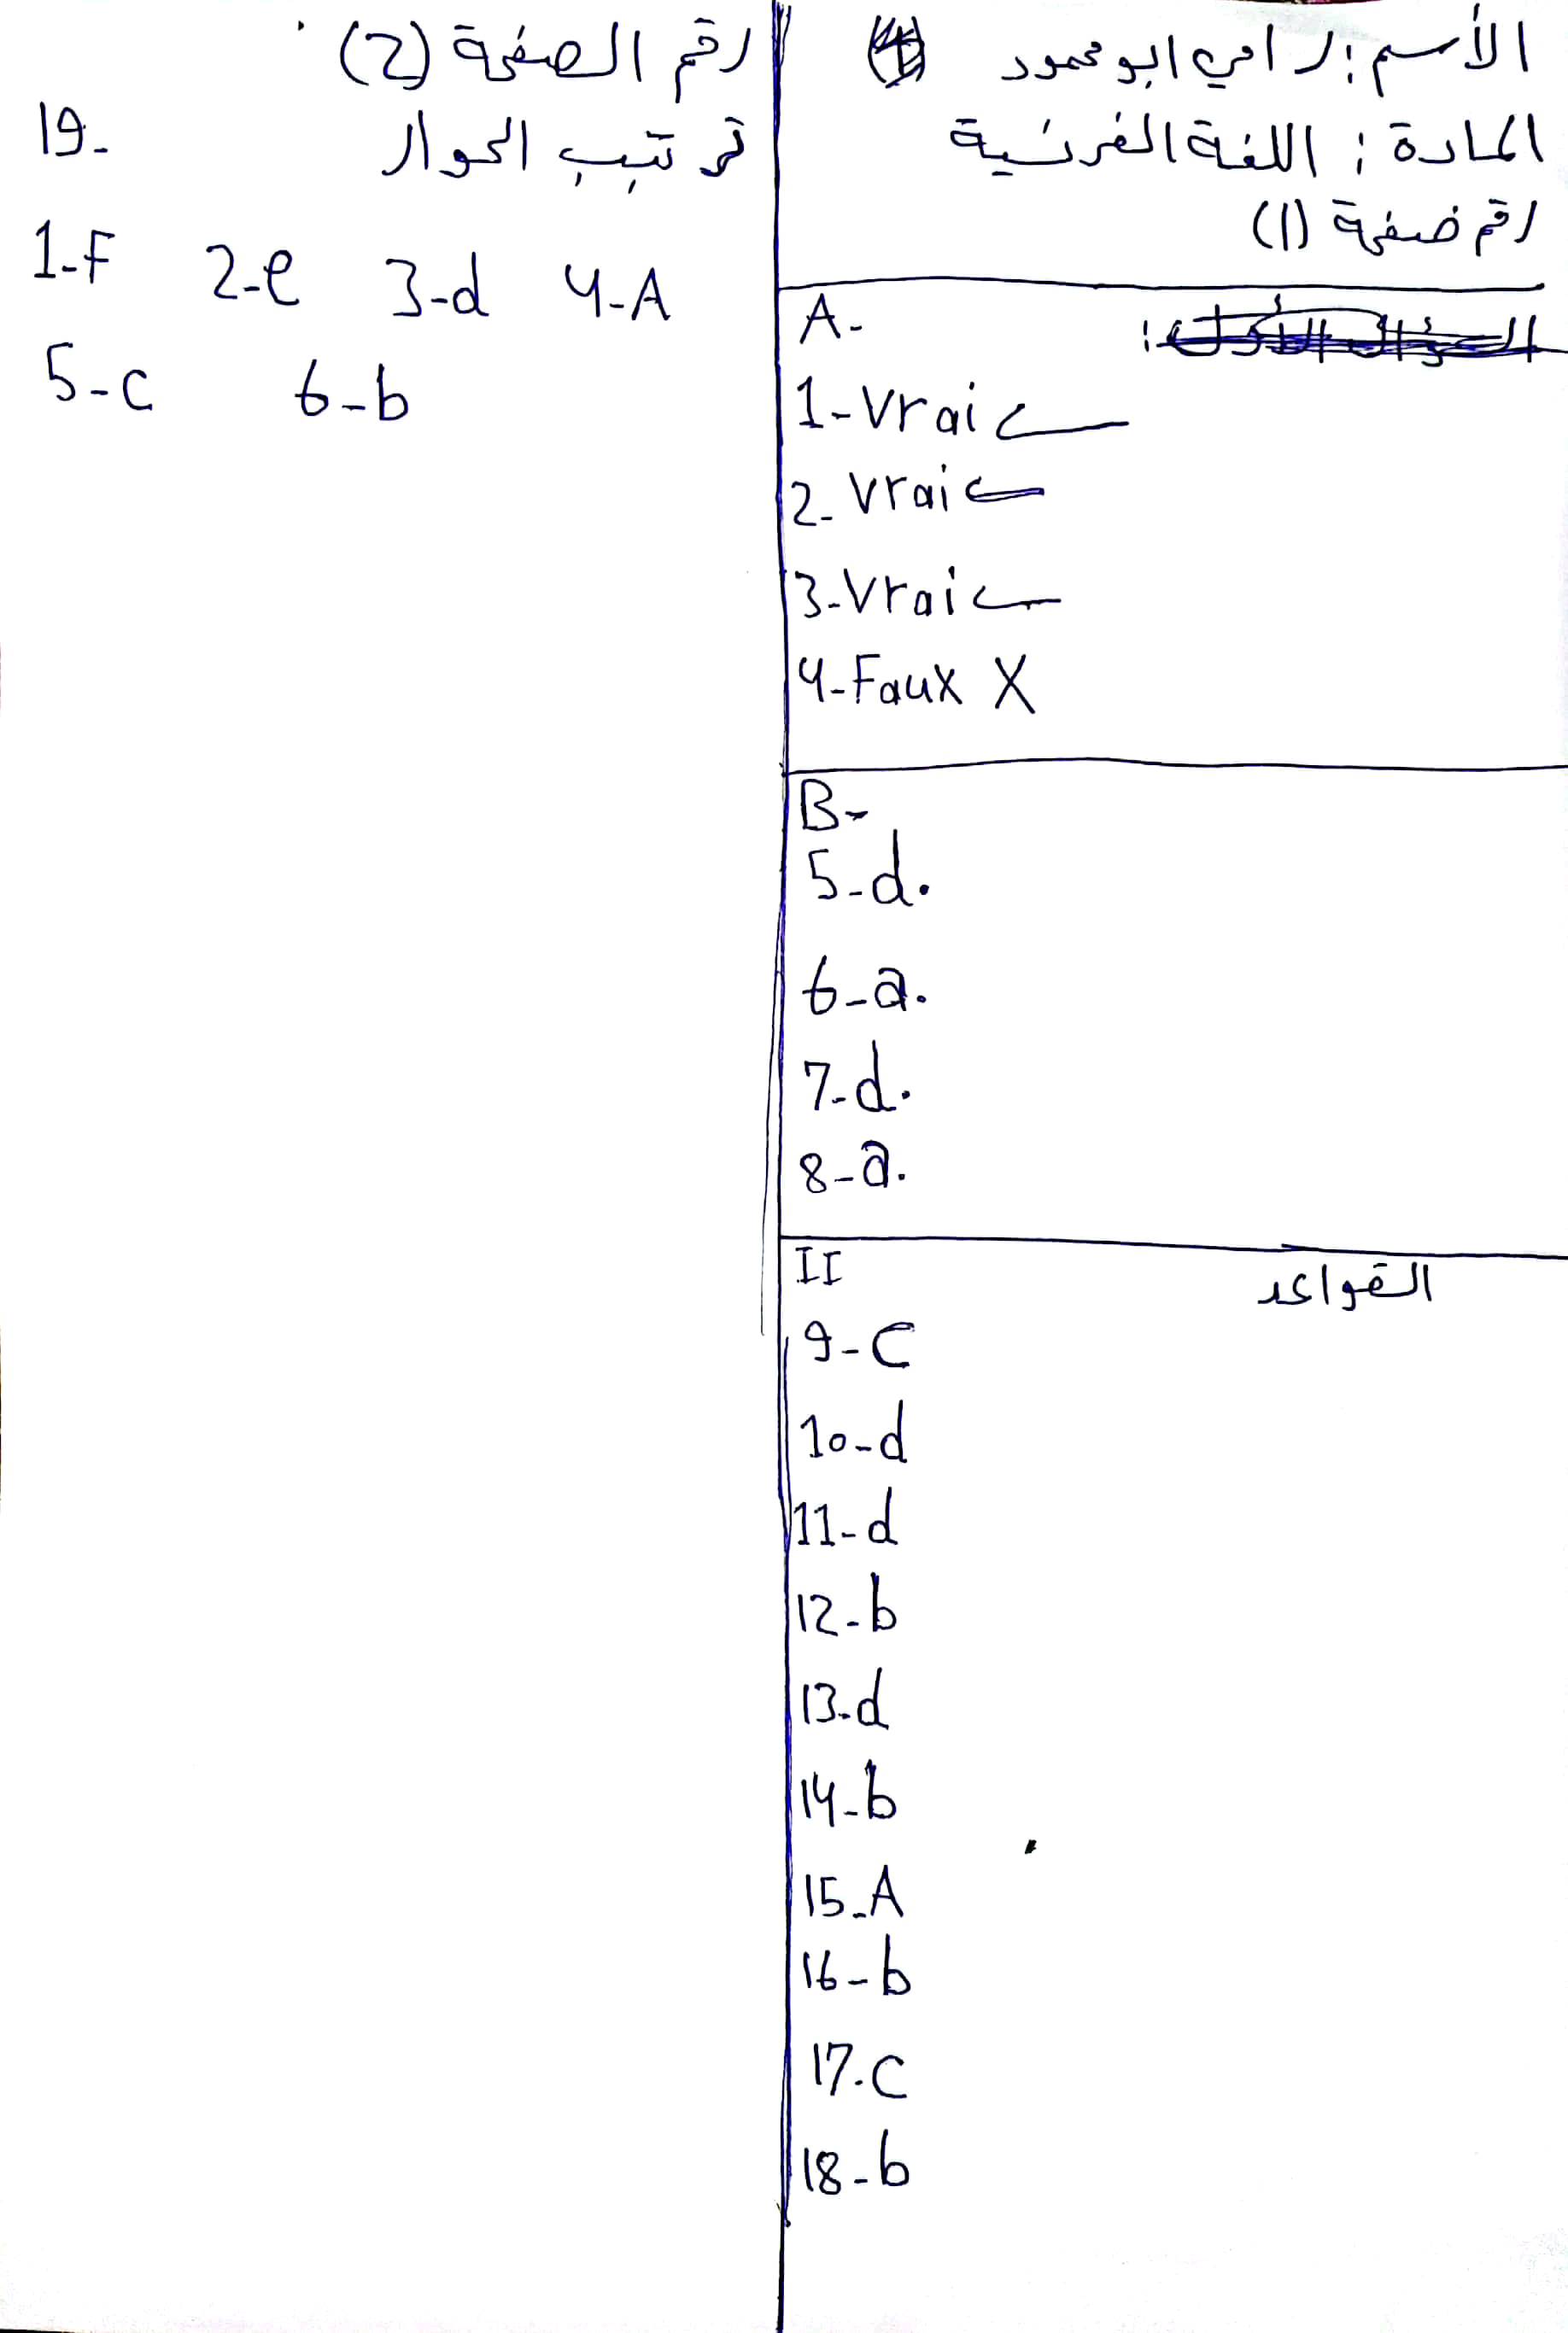 الأسم : رامي ابو محمود
المادة : اللغة الفرنسية
رقم صفحة (1)
A-
1-Vrai
2-Vrai
3-Vrai
4-Faux X
B-
5-d.
6-a.
7-d.
8-a.
II القواعد
9-C
10-d
11-d
12-b
13-d
14-b
15-A
16-b
17-C
18-b
رقم الصفحة (2)
19- ترتيب الحوار
1-F 2-e 3-d 4-A
5-c 6-b